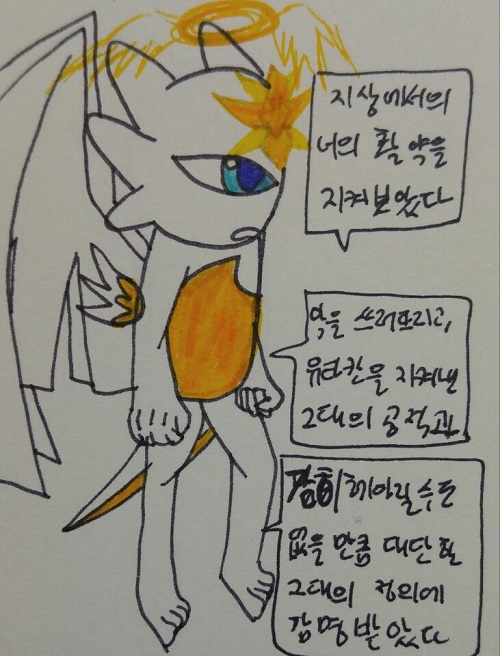 지상에서의
너의 활약을
지켜보았다
악을 쓰러뜨리고,
유타칸을 지켜낸
그대의 공적과
감히 헤아릴수도
없을 만큼 대단한
그대의 정의에
감명 받았다